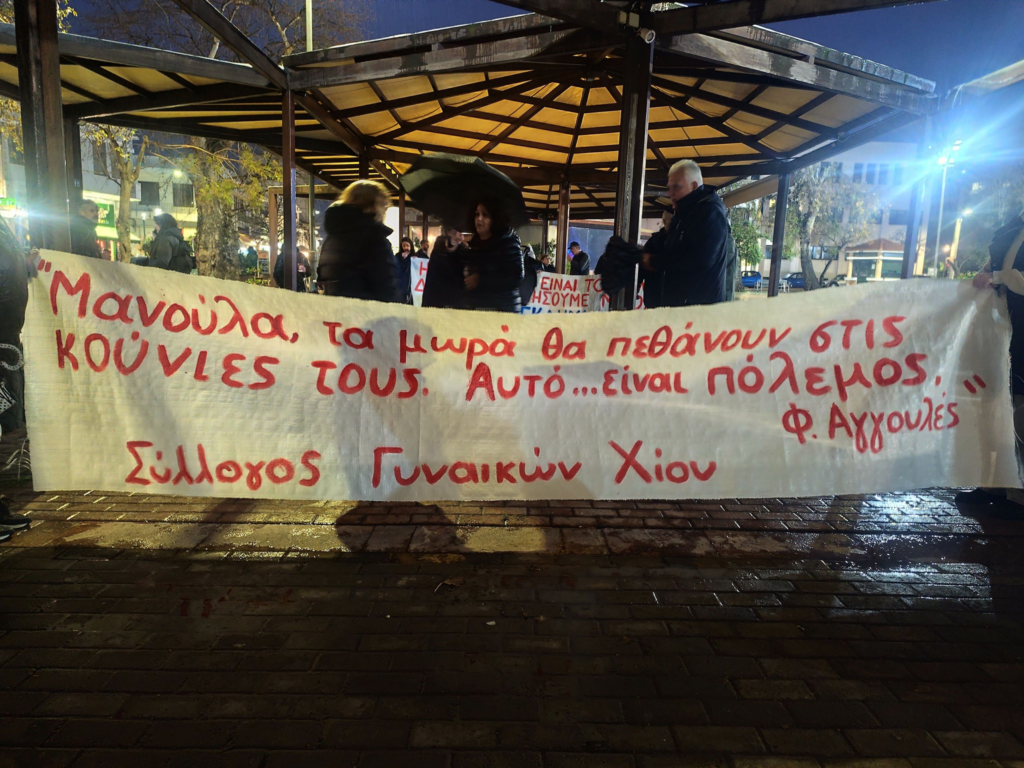 "Μανούλα, τα μωρά θα πεθάνουν στις
κούνιες τους. Αυτό... είναι πόλεμος."
Φ. Αγγουλές
Σύλλογος Γυναικών Χίου
ΕΙΝΑΙ ΤΟ